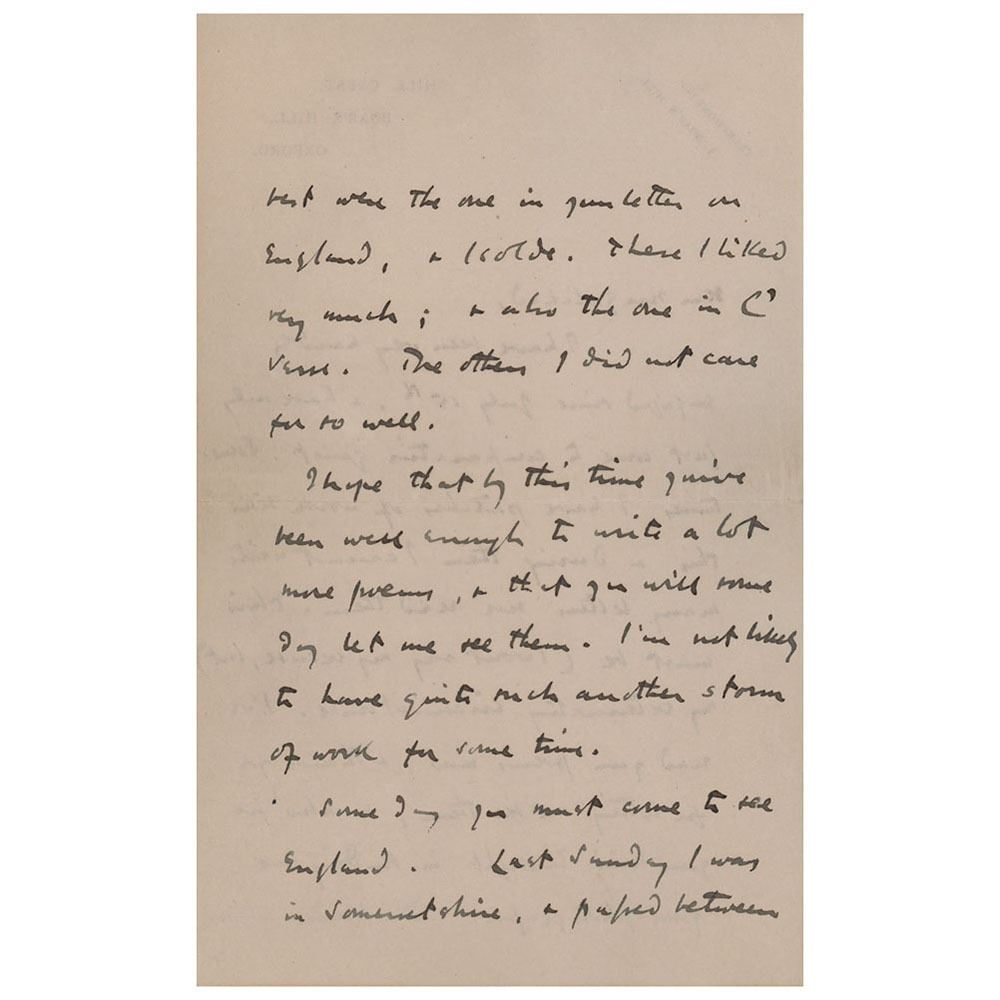 best were the one in your letter on
England, & Isolde. These I liked
very much; & also the one in C'
Verse. The others I did not care
for so well.
I hope that by this time you've
been well enough to write a lot
more poems, & that you will some
day let me see them. I'm not likely
to have quite such another storm
of work for some time.
Some day you must come to see
England. Last Sunday I was
in Somersetshire, & passed between